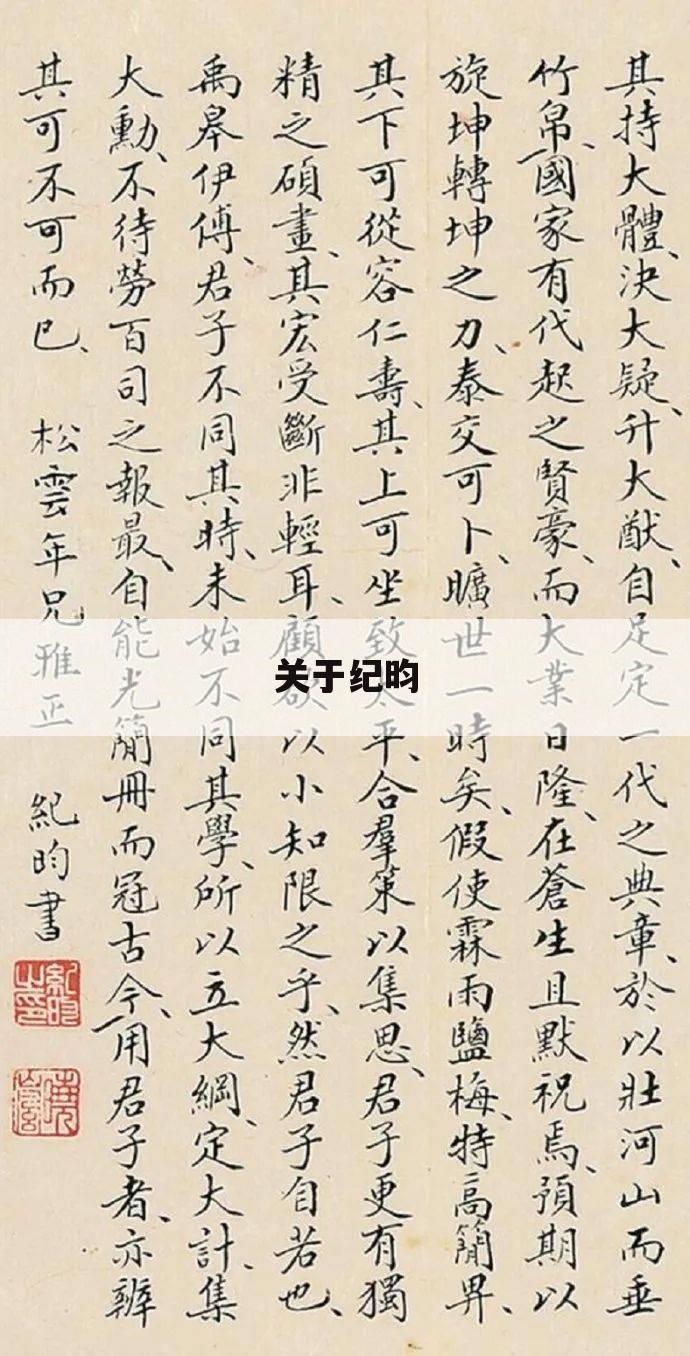 其持大體、決大疑、升大猷、自足定一代之典章、於以壯河山而垂
竹帛、國家有代起之賢豪、而大業日隆、在蒼生且默祝焉、預期以
旋坤轉坤之力、泰交可卜、曠世一時矣、假使霖雨鹽梅、特高簡畀、
其下可從容仁壽、其上可坐致太平、合羣策以集思、君子更有獨
精之碩畫、其宏受斷非輕耳、顧欲以小知限之乎、然君子自若也、
禹皋伊傅、君子不同其時、未始不同其學、所以立大綱、定大計、集
大勳、不待勞百司之報最、自能光簡冊而冠古今、用君子者、亦辨
其可不可而已、
松雲年兄雅正
紀昀書
紀昀之印
关于纪昀